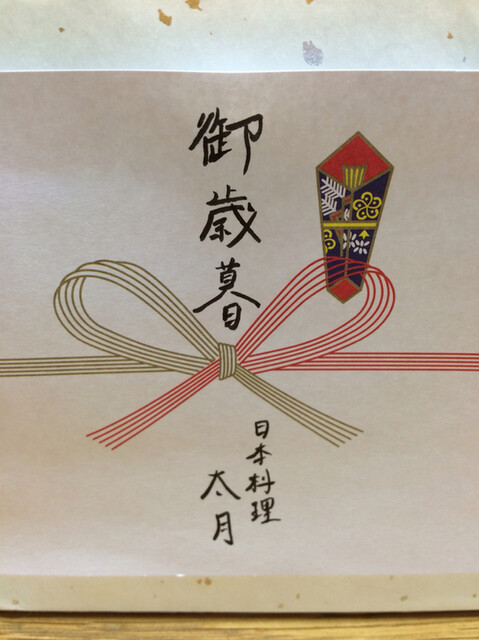 御歳暮
日本料理
太月